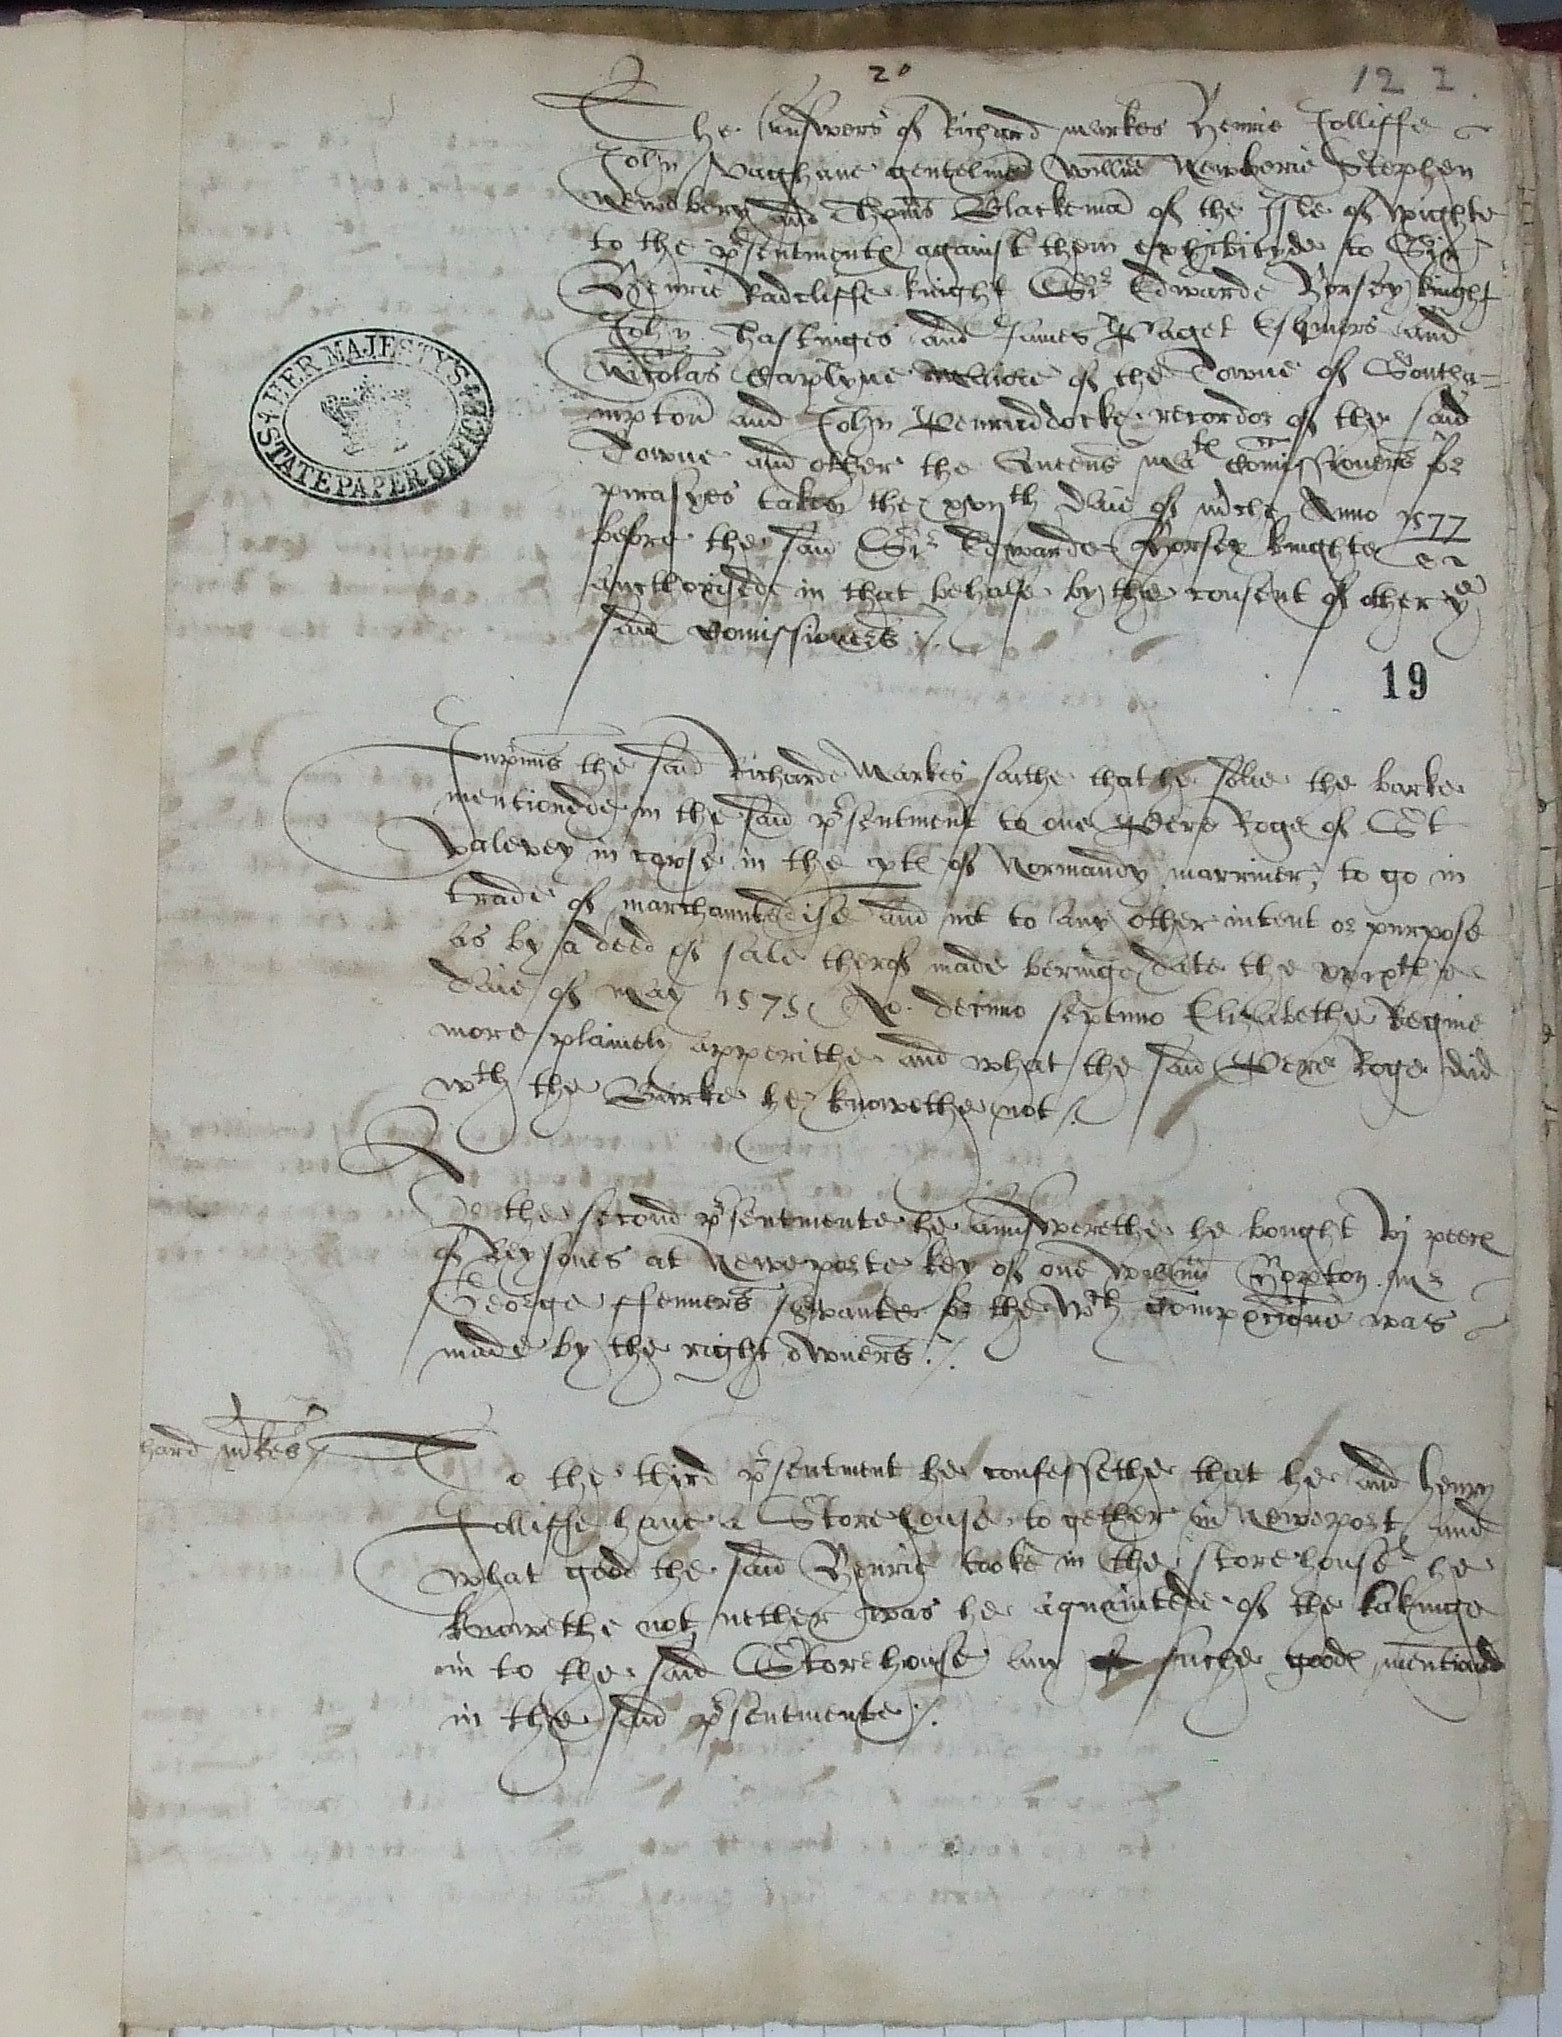 20
122
The Aunswers of Richard Markes Henrie Jolliffe
John Vaghane gentelmen Willm̄ Newberie Stephen
Newbery and Thom̄s Blackemā of the Isle of wighte
to the p̄sentmentes against them exhibityde to Sir
Henrie Radcliffe knight Sr Edwarde Horsey knight
John Hastinges and James Paget Esquiers and
Nicolas Caplyne Maiore of the Towne of Southa=
mpton and John Penruddocke recordor of the said
Towne and other the Queens Mates Comissioners for
pirasyes taken the xviijth daie of Mche Anno 1577
before the said Sr Edwarde Horsey knighte
aucthorisede in that behalfe by the consent of other ye
said Comissioners ./.
19
HER MAJESTY'S STATE PAPER OFFICE
Inprimis the said Richarde Markes saithe that he solde the barke
mentionedde in the said p̄sentment to one Pere Roge of St
Valerey in in the ptes of Normandy marriner, to go in
trade of marchauntdise and not to any other intent or purpose
as by a deed of sale therof made beringe date the xxixth
daie of May 1575 Ao. decimo septimo Elizabethe Regine
more plainely apperithe and what the said Pere Roge did
wth the Barke he knowethe not ./.
To the second p̄sentmente he aunswerethe he bought vj peeces
of Reysones at Neweporte key of one Willm̄ Hopton mr
George ffenners servante for the wch composicione was
made by the right owners ./.
hard M̄kes
To the third p̄sentment he confessethe that he and Henry
Jolliffe have a Storehouse together in Neweport and
what good the said Henrie tooke in the storehouse he
knowethe not nether was he aquaintede of the takinge
in to the said Storehouse any suche goodes mentioned
in the said p̄sentmente ./.